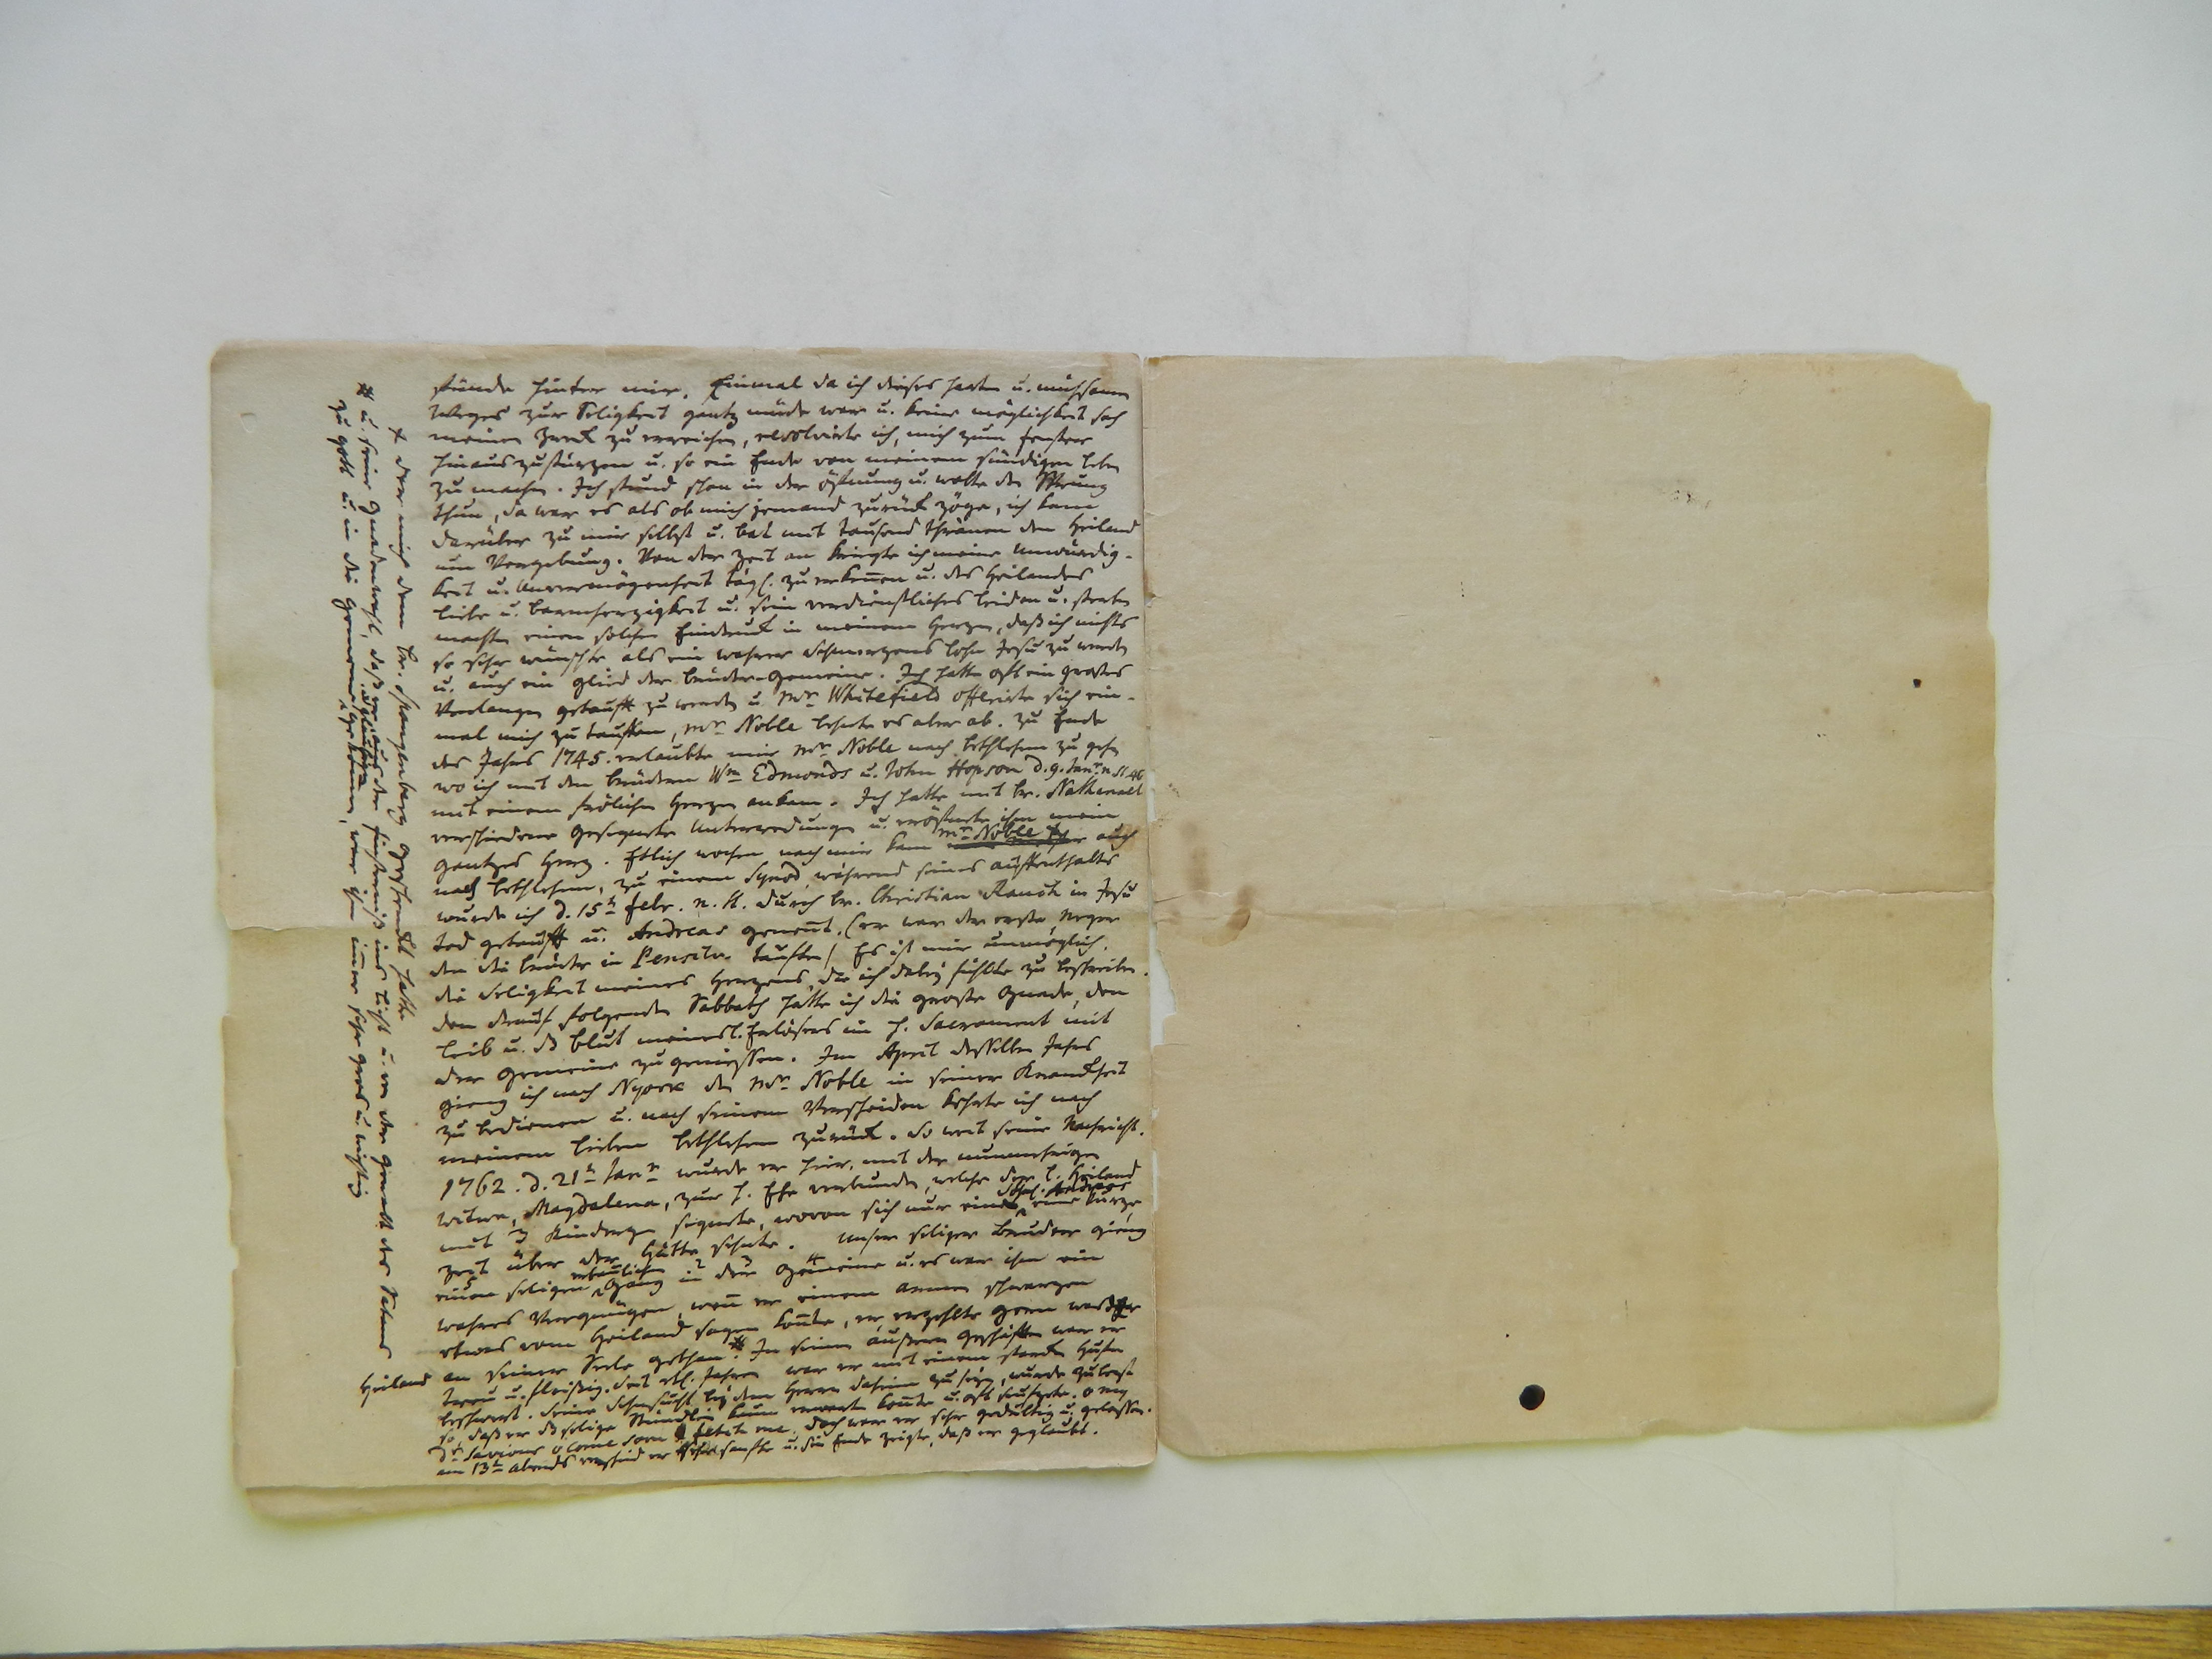 stünde hinter mir. Einmal da ich dieses harten u. mühsamen
Weges zur Seligkeit gantz müde war u. keine möglichkeit sah
meinen Zweck zu erreichen, resolvirte ich, mich zum fenster
hinauszustürzen u. so ein Ende von meinem sündigen leben
zu machen. Ich stund schon in der öfnung u. wolte den Sprung
thun, da war es als ob mich jemand zurück zöge, ich kam
darüber zu mir selbst u. bat mit tausend thränen den Heiland
um Vergebung. Von der Zeit an kriegte ich meine Unwürdig-
keit u. Unvermögenheit tägl. zu erkennen u. des Heilandes
liebe u. barmherzigkeit u. sein verdienstliches leiden u. sterben
machte einen solchen Eindruck in meinem Herzen, daß ich nichts
so sehr wünschte als ein wahrer Schmerzens lohn Jesu zu werden
u. auch ein glied der brüder-Gemeine. Ich hatte oft ein groses
Verlangen getauft zu werden u. Mr. Whitefield offerirte sich ein-
mal mich zu tauffen, Mr. Noble lehnte es aber ab. Zu Ende
des Jahres 1745. erlaubte mir Mr. Noble nach bethlehem zu gehn
wo ich mit den brüdern Wm Edmonds u. John Hopson d. 9. Janr. n. St. 46
mit einem frölichen Herzen ankam. Ich hatte mit br. Nathanael
verschiedene gesegnete Unterredungen u. eröfnete ihm mein
gantzes Herz. Etlich wochen nach mir kam Mr. Noble auch
nach bethlehem, zu einem Synod, während seines auffenthalts
wurde ich d. 15t febr. n. St. durch br. Christian Rauch in Jesu
tod getaufft u. Andreas genent. (er war der erste Neger
den die brüder in Pensilv. tauften) Es ist mir unmöglich,
die Seligkeit meines Herzens, die ich dabey fühlte zu beschreiben.
den drauf folgenden Sabbath hatte ich die grose Gnade, den
leib u. ds blut meines l. Erlösers im h. Sacrament mit
der Gemeine zu geniessen. Im April desselben Jahrs
gieng ich nach NYork den Mr. Noble in seiner Kranckheit
zu bedienen u. nach seinem Verscheiden kehrte ich nach
meinem lieben bethlehem zurück. So weit seine Nachricht.
1762. d. 21t Janr. wurde er hier, mit der nunmehrigen
witwe, Magdalena, zur h. Ehe verbunden, welche der l. Heiland
mit 3 Kindern segnete, wovon sich nur eines eine kurze
zeit über der Hütte sehnte. Unser seliger bruder gieng
einen seligen erbaulichen Gang in der Gemeine u. es war ihm ein
wahres Vergnügen, wenn er einem armen schwarzen
etwas vom Heiland sagen konte, er erzehlte gern was der
Heiland an seiner Seele gethan. # In seinen äußeren geschäften war er
treu u. fleißig. Seit etl. Jahren war er mit einem starken Husten
beschwert. Seine Sehnsucht bey dem Herrn daheim zu seyn, wurde zuletzt
so, daß er ds selige Stündlein kaum erwarten konte u. oft seufzete. o my
Dr. Saviour o come soon & fetch me. doch war er sehr gedultig u. gelassen.
am 13t abends verschied er sehr sanfte u. sein Ende zeigte, daß er geglaubt.
x der mich dem br. Spangenberg geschenckt hatte
# u. seine gnadenwahl, daß er aus der finsterniß ins licht u. von der gewalt des Satans
zu gott u. in die Gemeine gekommen, war ihm immer sehr gros u. wichtig